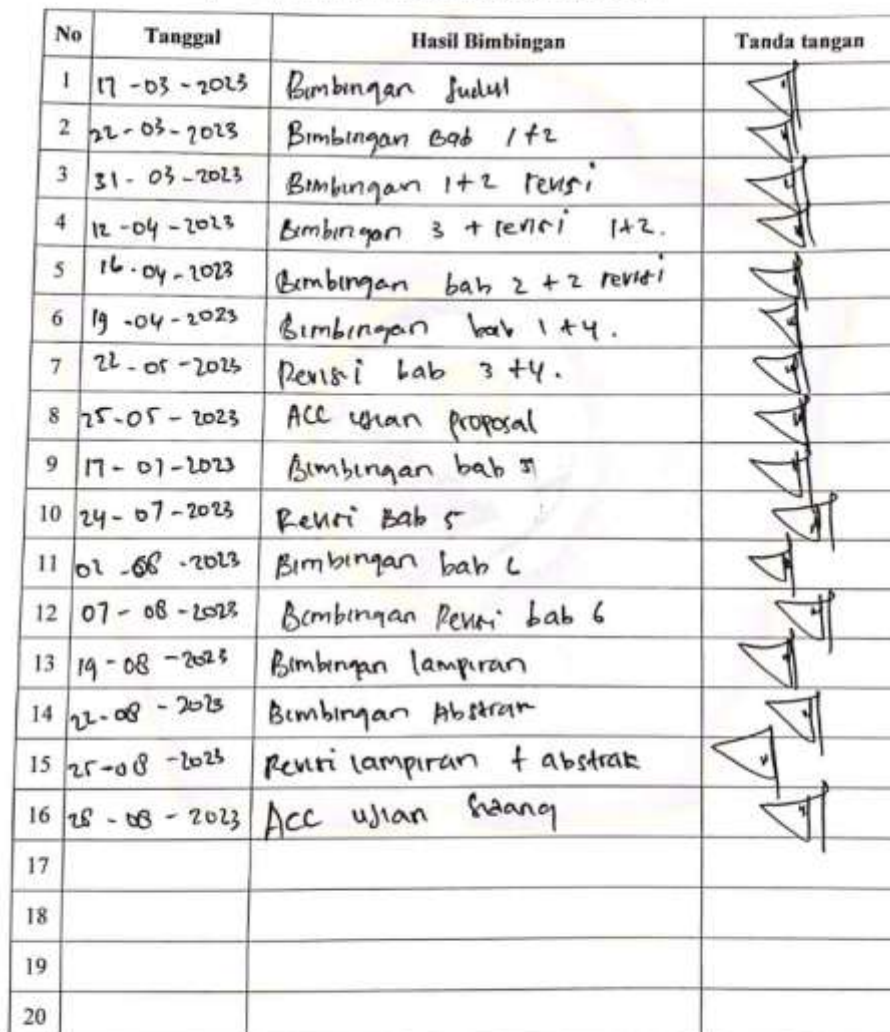 No Tanggal Hasil Bimbingan Tanda tangan
1 17-03-2023 Bimbingan Judul
2 22-03-2023 Bimbingan Bab 1+2
3 31-03-2023 Bimbingan 1+2 revisi
4 12-04-2023 Bimbingan 3 + revisi 1+2.
5 16-04-2023 Bimbingan bab 2 + 2 revisi
6 19-04-2023 Bimbingan bab 1+4.
7 22-05-2023 Revisi bab 3+4.
8 25-05-2023 ACC ujian proposal
9 17-07-2023 Bimbingan bab 5
10 24-07-2023 Revisi Bab 5
11 02-08-2023 Bimbingan bab 6
12 07-08-2023 Bimbingan Revisi bab 6
13 19-08-2023 Bimbingan lampiran
14 22-08-2023 Bimbingan Abstrak
15 25-08-2023 Revisi lampiran + abstrak
16 28-08-2023 ACC ujian Sidang
17
18
19
20